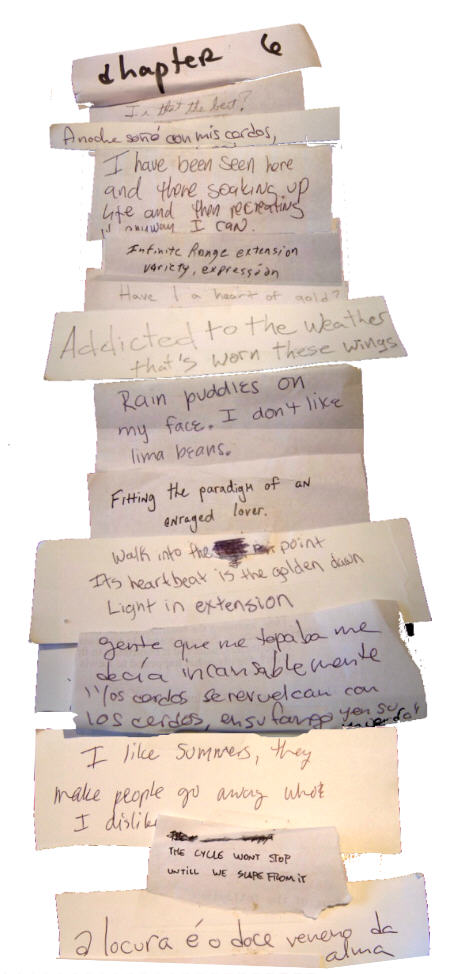 chapter 6
Is that the best?
Anoche soñé con mis cardos,
I have been seen here
and there soaking up
life and then recreating
it anyway I can.
Infinite Range extension
variety, expression
Have I a heart of gold?
Addicted to the weather
that's worn these wings
Rain puddles on
my face. I don't like
lima beans.
Fitting the paradigm of an
enraged lover.
Walk into the point
Its heartbeat is the golden dawn
Light in extension
gente que me topaba me
decía incansablemente
"los cerdos se revuelcan con
los cerdos, en su fango y en su
I like Summers, they
make people go away
I dislike
THE CYCLE WONT STOP
UNTILL WE FROM IT
a locura é o doce veneno da
alma